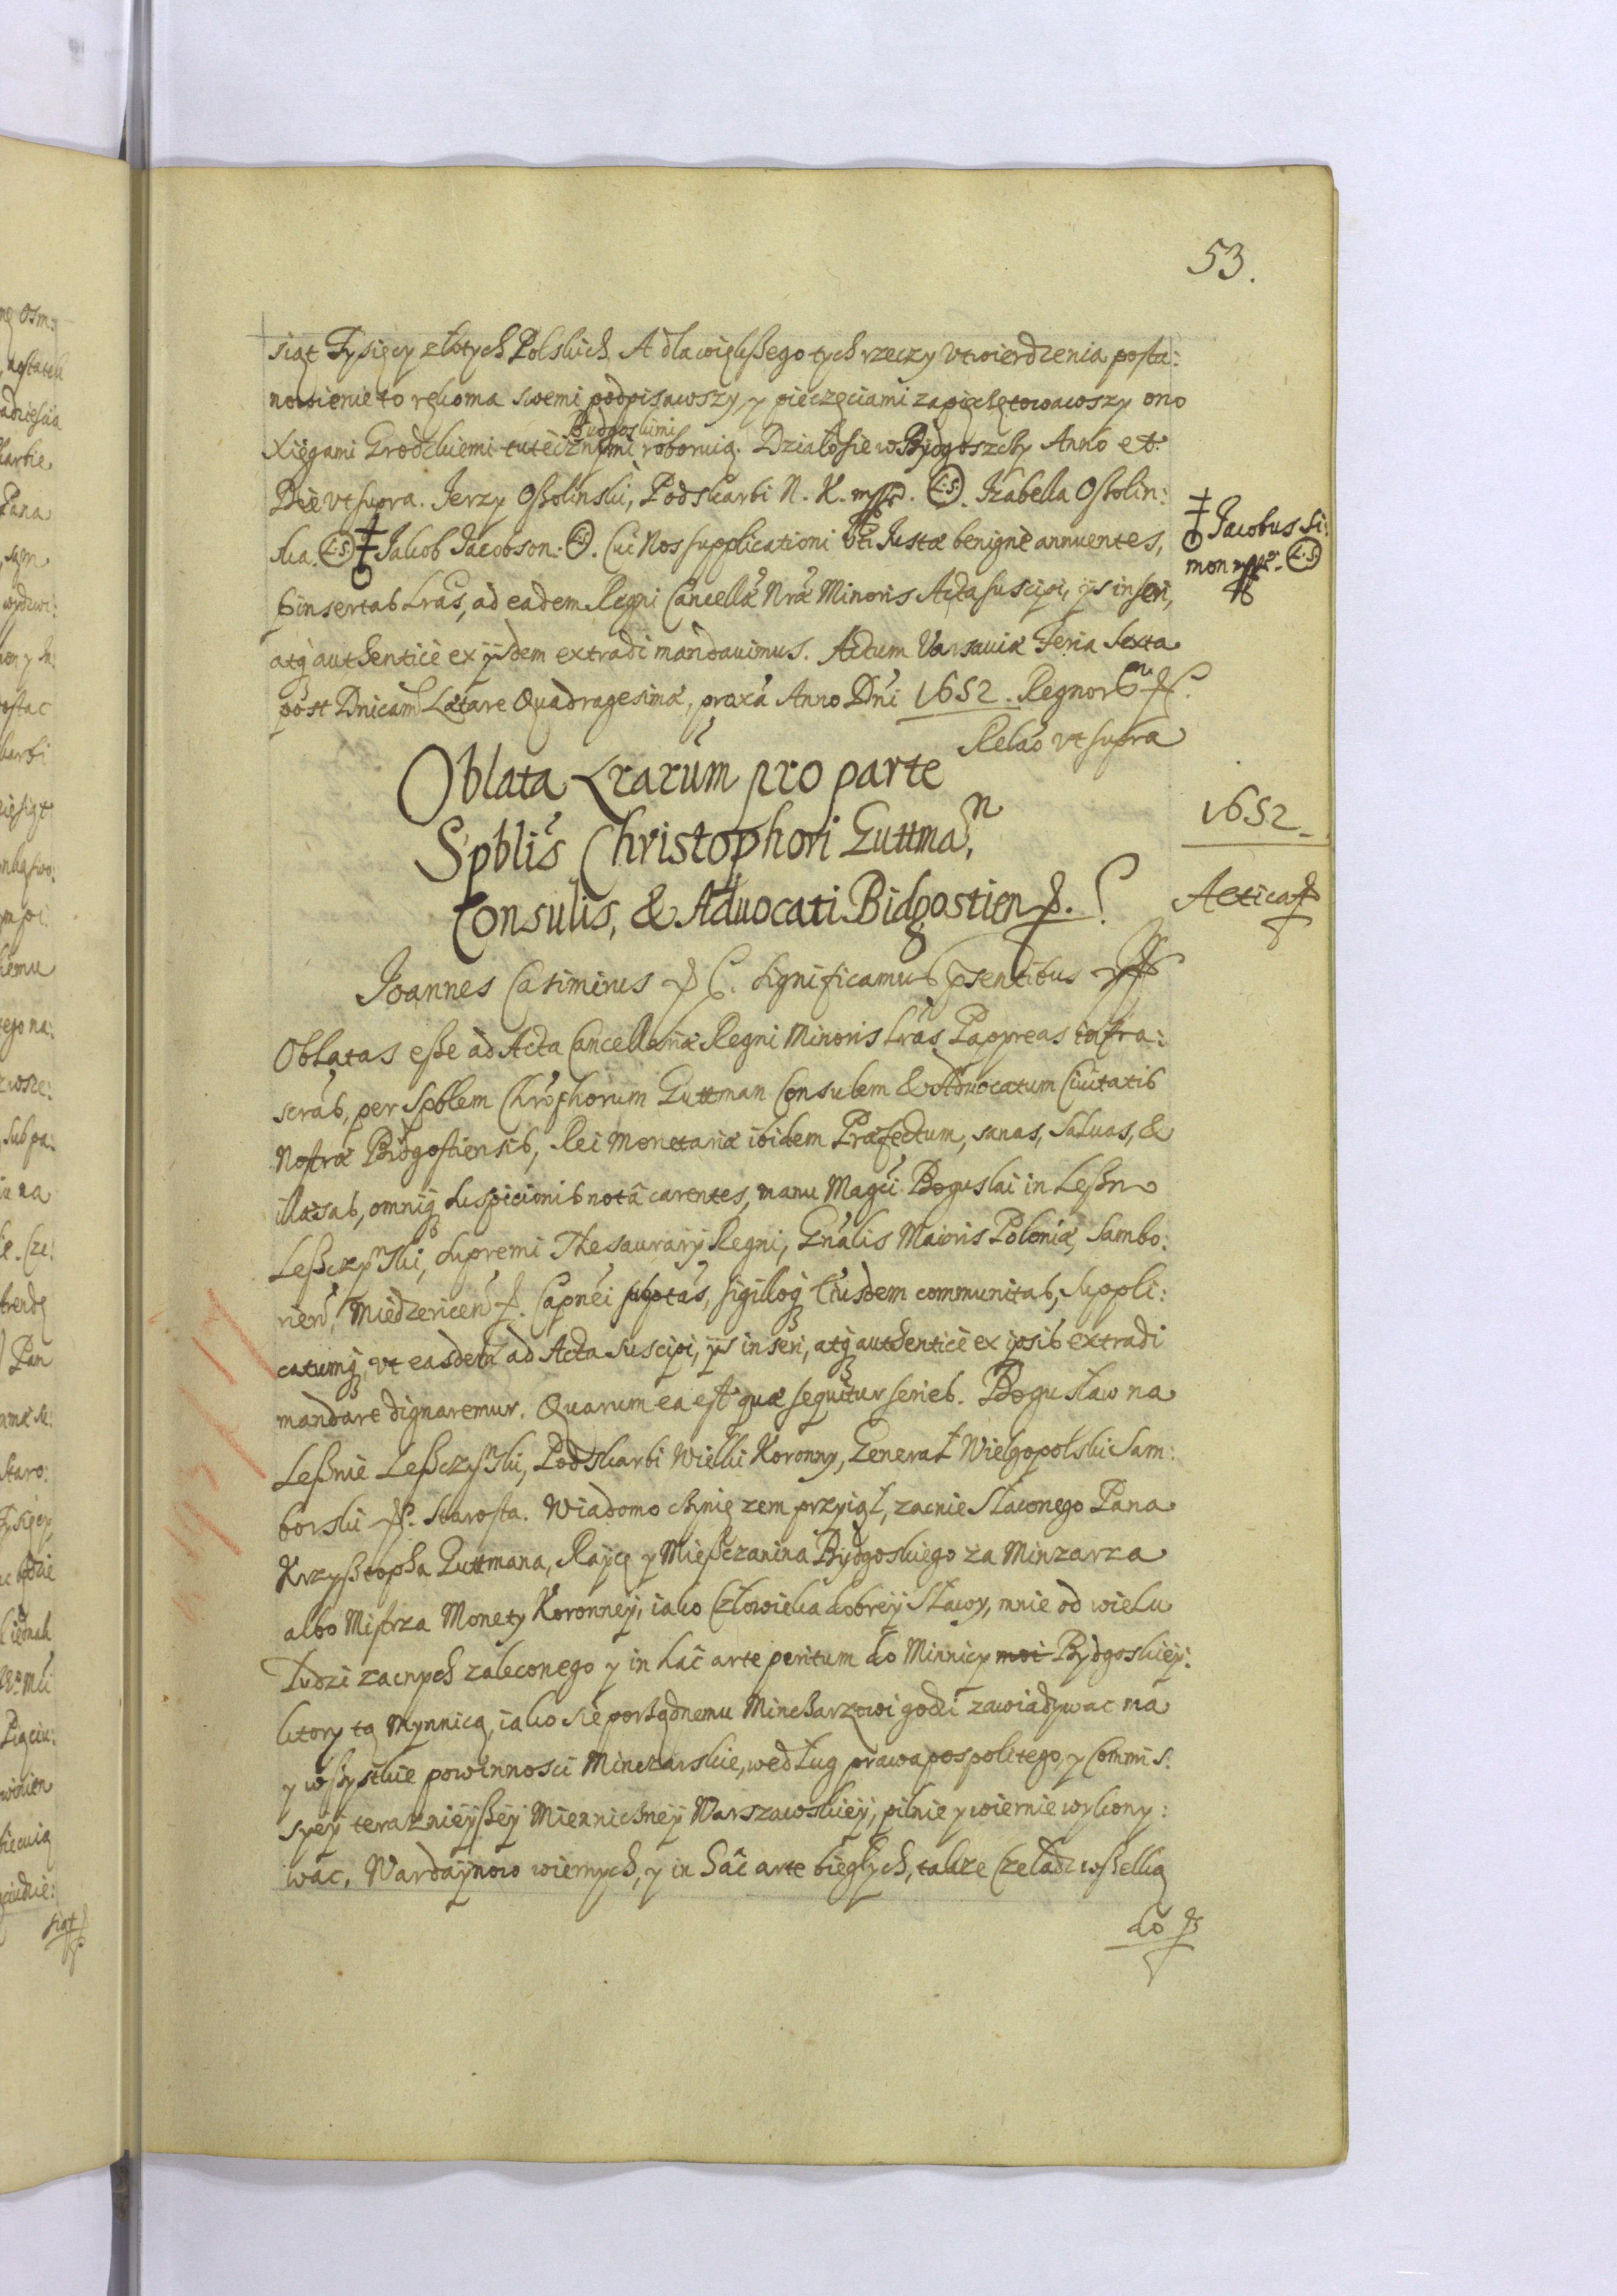 53.
siąt Tysięcy złotych Polskich. A dla większego tych rzeczy utwierdzenia posta:
nowienie to rękoma swemi podpisawszy, y pieczęciami zapieczętowawszy ono
Bydgoskimi
Xięgami Grodzkiemi tutecznymi roboruią. Działo się w Bydgoszczy Anno et
Die ut supra. Jerzy Ossolinski, Podskarbi N. K. mppr. L.S. Izabella Ossolin:
ska. L.S. Jakob Jacobson. L.S. Cui Nos supplicationi uti Iustæ benignè annuentes,
Jacobus Si:
mon mppr. L.S.
pinsertas Lrās, ad eadem Regni Cancellæ Nræ Minoris Acta suscipi, ijs inseri,
atq́ authenticè ex ijsdem extradi mandavimus. Actum Varsaviæ Feria Sexta
post Dnicam Lætare Quadragesimæ, proxã Anno Dñi 1652. Regnor
Relāo ut supra
Oblata Lrarum pro parte
Spblis Christophori Guttman,
Consulis, & Advocati Bidgostien.
1652
Actica
Joannes Casimirus C. Significamus psentibus
Oblatas esse ad Acta Cancellariæ Regni Minoris Lrās Pappreas infra:
scrās, per Spblem Chrõphorum Guttman Consulem & Advocatum Civitatis
Nostræ Bidgostiensis, Rei Monetariæ ibidem Præfectum, sanas, salvas, &
illæsas, omniq́ suspicionis notâ carentes, manu Magci Boguslai in Leszno
Leszczynski, Supremi Thesaurarij Regni, Gnālis Maioris Poloniæ, Sambo:
rien, Miedzericen. Capnei subptas, sigilloq́ Eiusdem communitas, suppli:
catumq́, ut easdem ad Acta suscipi, ijs inseri, atq́ authenticè ex ipsis extradi
mandare dignaremur. Quarum ea est quæ sequitur series. Bogusław na
Lesznie Leszczynski, Podskarbi Wielki Koronny, Generał Wielgopolski Sam:
borski Starosta. Wiadomo czynię zem przyiął, zacnie Sławonego Pana
Krzysztopha Guttmana, Raycę y Mieszczanina Bydgoskiego za Minzarza
albo Mistrza Monety Koronnej, iako Człowieka dobrej Sławy, mnie od wielu
Ludzi zacnych zaleconego y in hac arte peritum do Minnicy moi Bydgoskiej:
ktory tą Mynnicą, iako się porządnemu Mincarzowi godzi zawiadywac ma
y wszystkie powinnosci Mincarskie, według prawa pospolitego, y Commis:
syey teraznieyszey Mienniczney Warszawskiey, pilnie y wiernie wykony:
wac, Wardaynow wiernych, y in hac arte biegłych, takze Czeladz wszelką
do